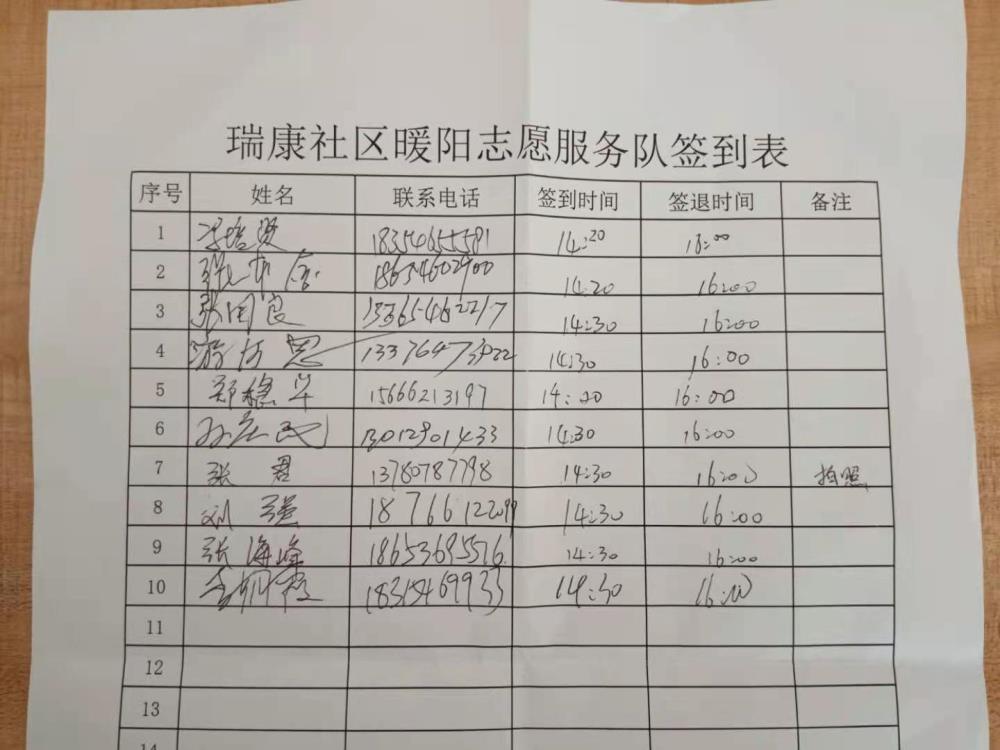 瑞康社区暖阳志愿服务队签到表
序号 姓名 联系电话 签到时间 签退时间 备注
1 18354655581 14:20 18:00
2 18654602900 14:20 16:00
3 张国良 13365462217 14:30 16:00
4 13376473022 14:30 16:00
5 郑穗华 15666213197 14:00 16:00
6 13012901433 14:30 16:00
7 张君 13780787798 14:30 16:00 拍照
8 刘强 18766122099 14:30 16:00
9 张海峰 18653695576 14:30 16:00
10 14:30 16:00
11
12
13
14